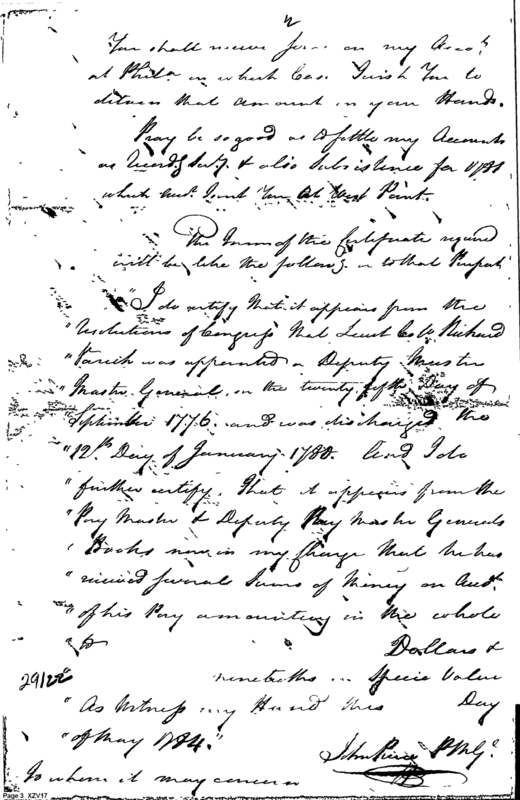 2
You shall receive on my Acco.t
at Phil.a in which Case I wish You to
 that amount in your Hands.
Pray be so good as to settle my Accounts
as & also Subsistence for 1781
which I sent You at West Point.
The form of the Certificate required
will be like the follow.g or to that Purport
"I do certify that it appears from the
"Resolutions of Congress that Lieut Col.o Richard
"Varick was appointed a Deputy Muster
"Master General on the twenty fifth Day of
September 1776. and was discharged the
"12.th Day of January 1780. And I do
"further certify, That it appears from the
"Pay Master & Deputy Pay Master Generals
"Books now in my Charge that he has
"received several Sums of Money on Acc.t
"of his Pay amounting in the whole
"to Dollars &
29/ ninetieths in Specie Value
"As Witness my Hand this Day
"of May 1784."
John Pierce P.M.G.l
To whom it may concern
Page 3 XZV17